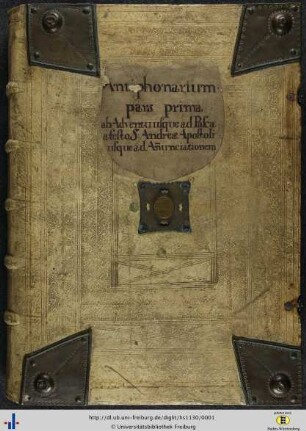 Antiphonarium
pars prima
ab Adventu usque ad Pasca
a festo S. Andreæ Apostoli
usque ad Añunciationem
http://dl.ub.uni-freiburg.de/diglit/hs1130/0001
© Universitätsbibliothek Freiburg
Baden-Württemberg